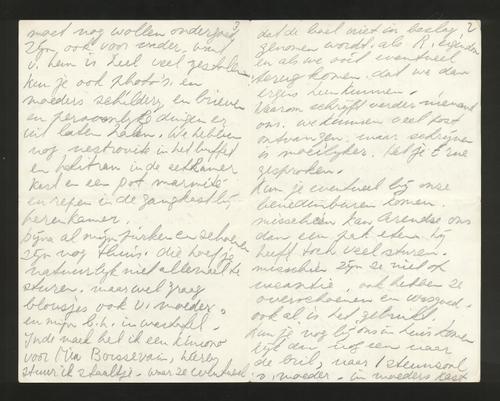 3
moet nog wollen ondergoed
zijn, ook voor onder, want
v. hem is heel veel gestolen
kun je ook photo's, en
moeders schilderij en brieven
en persoonlijke dingen er
uit laten halen. We hebben
nog nestrovite in het buffet
en halitran in de eetkamer
kast en een pot marmite
en repen in de gangkast bij
herenkamer.
Bijna al mijn jurken en schoenen
zijn nog thuis. die hoef je
natuurlijk niet allemaal te
sturen. maar wel graag
blousjes ook v. moeder.
en mijn b.h. in wastafel.
In de naaikast ik een kimono
voor Boissevain,
stuur ik staaltje. waar ze eventueel
2
dat de boel niet in beslag
genomen wordt, als R. eigendom
en als we ooit eventueel
terug komen, dat we dan
ergens heen kunnen.
Waarom schrijft verder niemand
ons. we kunnen veel post
ontvangen, maar schrijven
is moeilijker. Heb je
gesproken.
Kun je eventueel bij onze
benedenburen komen.
misschien kan Arendse ons
dan een pak eten. Hij
heeft toch veel sturen.
misschien zijn ze niet op
vacantie, ook hebben ze
overschoenen en wasgoed.
ook al is het gebruikt.
Kun je nog bij ons in huis komen
kijk dan nog een naar
de bril, naar 1 steunzool
v. moeder. in moeders kast